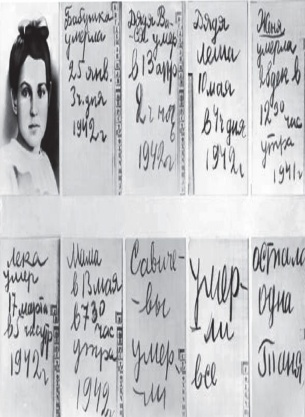 Бабушка
умерла
25 янв.
3 ч. дня
1942 г
Дядя Ва-
ся умер
в 13 апр
2 ч ноч
1942 г
Дядя
Леша
10 мая
в 4 ч дня
1942 г
Женя
умерла
28 дек в
12 30 час
утра
1941 г
Лека
умер
17 марта
в 5 час утр
1942 г
Мама
в 13 мая
в 7 30
час
утра
1942
Савиче-
вы
умер-
ли
умер-
ли
все
остала
одна
Таня